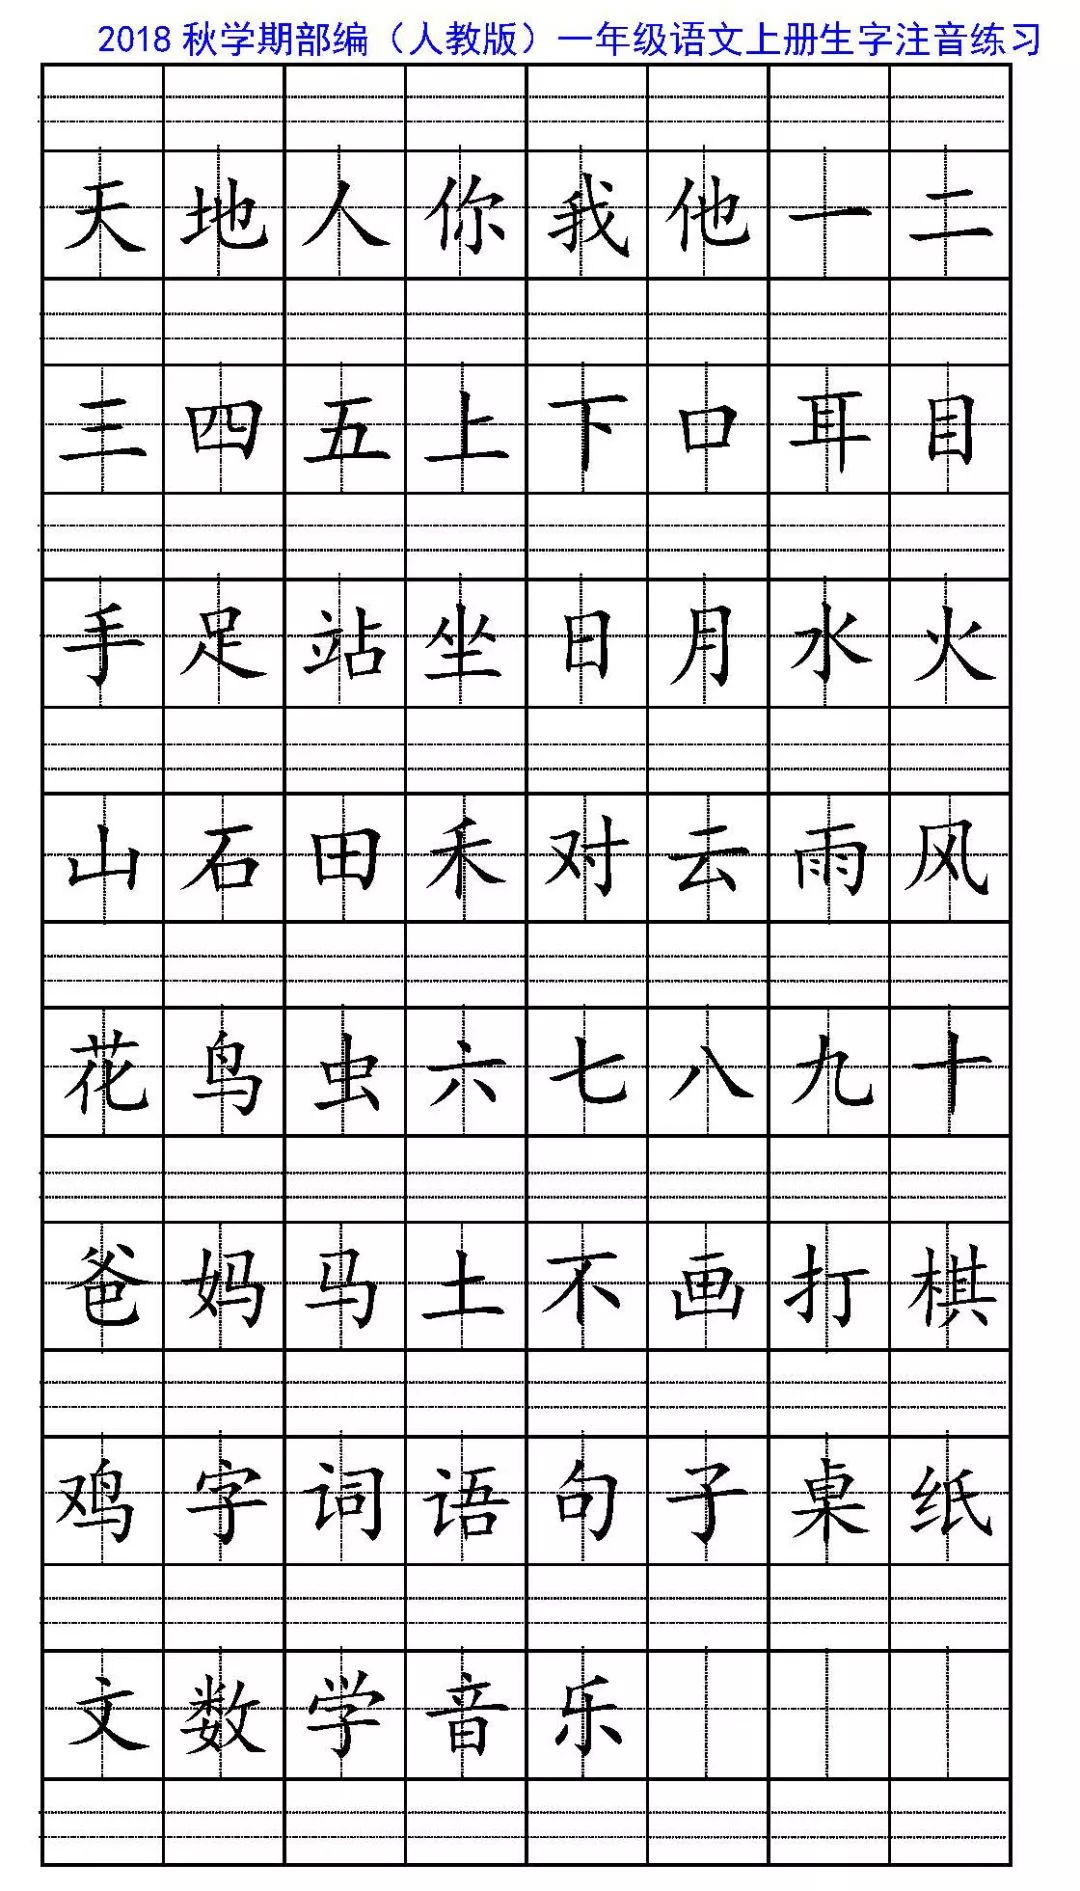 2018 秋学期部编（人教版）一年级语文上册生字注音练习
天 地 人 你 我 他 一 二
三 四 五 上 下 口 耳 目
手 足 站 坐 日 月 水 火
山 石 田 禾 对 云 雨 风
花 鸟 虫 六 七 八 九 十
爸 妈 马 土 不 画 打 棋
鸡 字 词 语 句 子 桌 纸
文 数 学 音 乐